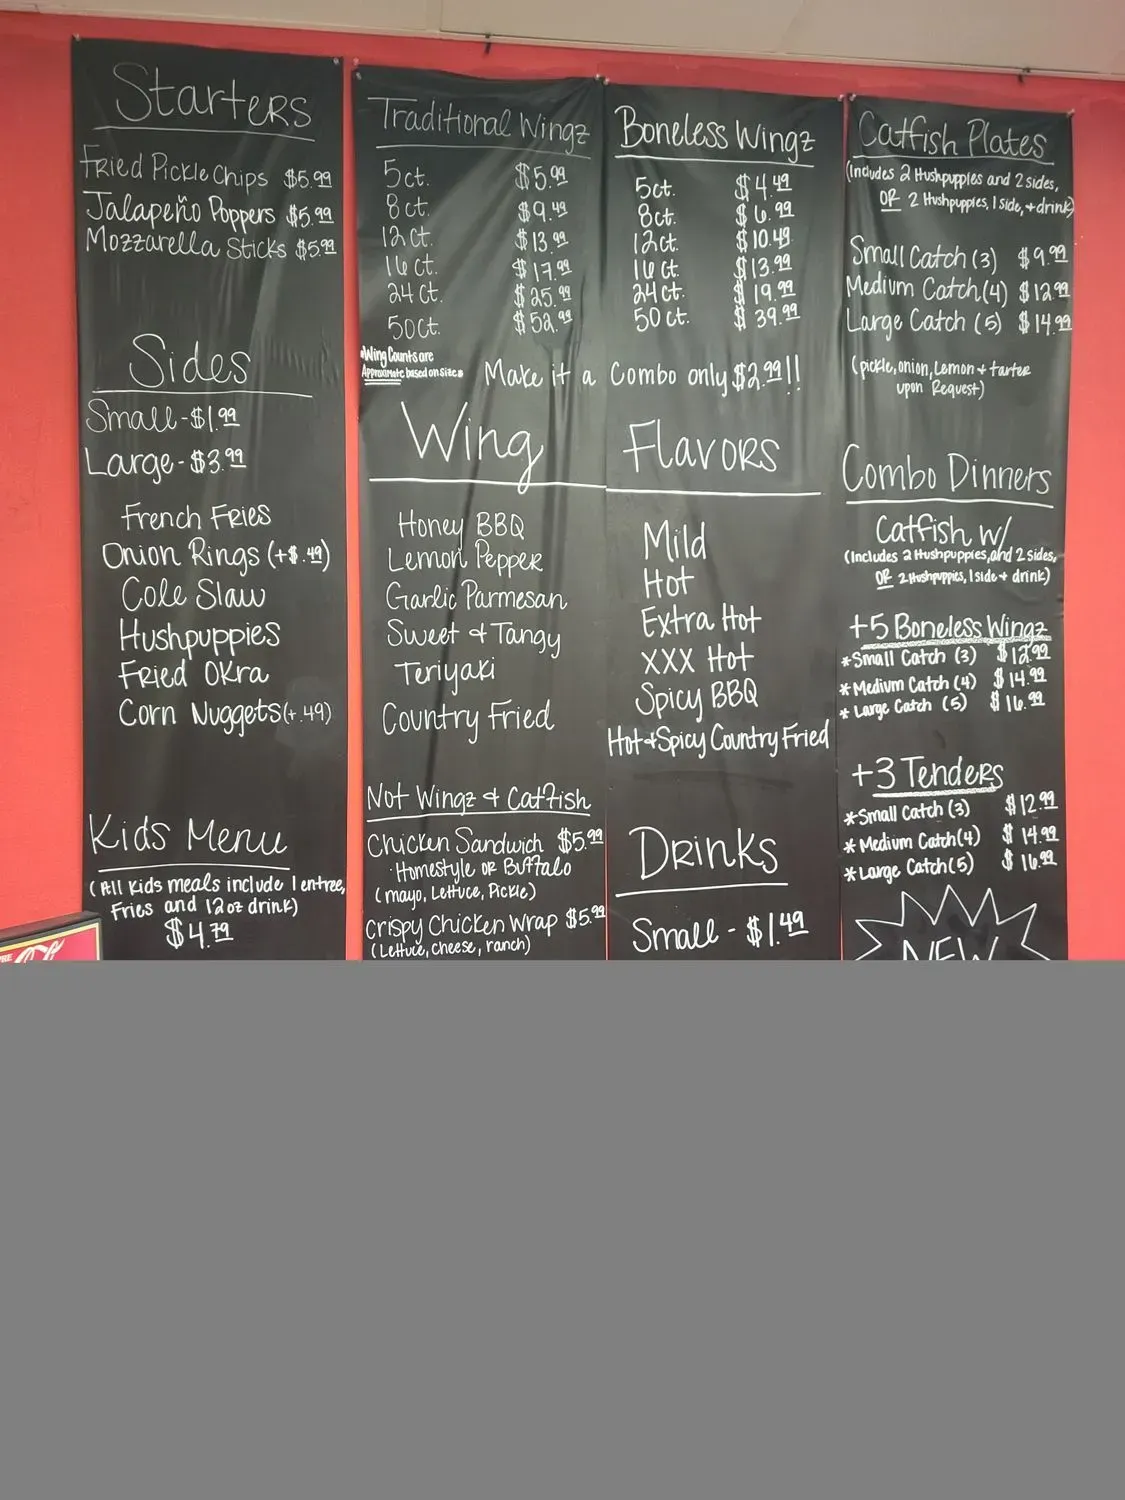 Starters
Fried Pickle Chips $5.99
Jalapeño Poppers $5.99
Mozzarella Sticks $5.99
Sides
Small - $1.99
Large - $3.99
French Fries
Onion Rings (+$.49)
Cole Slaw
Hushpuppies
Fried Okra
Corn Nuggets (+.49)
Kids Menu
(All kids meals include 1 entree,
Fries and 12oz drink)
$4.79
Traditional Wingz
5ct. $5.99
8ct. $9.49
12ct. $13.99
16ct. $17.99
24ct. $25.99
50ct. $52.99
*Wing Counts are
Approximate based on size*
Boneless Wingz
5ct. $4.49
8ct. $6.99
12ct. $10.49
16ct. $13.99
24ct. $19.99
50ct. $39.99
Make it a Combo only $2.99!!
Wing Flavors
Honey BBQ
Lemon Pepper
Garlic Parmesan
Sweet & Tangy
Teriyaki
Country Fried
Mild
Hot
Extra Hot
XXX Hot
Spicy BBQ
Hot & Spicy Country Fried
Not Wingz & Catfish
Chicken Sandwich $5.99
Homestyle or Buffalo
(mayo, Lettuce, Pickle)
Crispy Chicken Wrap $5.99
(Lettuce, cheese, ranch)
Drinks
Small - $1.49
Catfish Plates
(Includes 2 Hushpuppies and 2 sides,
OR 2 Hushpuppies, 1 side, + drink)
Small Catch (3) $9.99
Medium Catch (4) $12.99
Large Catch (5) $14.99
(pickle, onion, Lemon + tarter
upon Request)
Combo Dinners
Catfish w/
(Includes 2 Hushpuppies, and 2 sides,
OR 2 Hushpuppies, 1 side + drink)
+5 Boneless Wingz
*Small Catch (3) $12.99
*Medium Catch (4) $14.99
*Large Catch (5) $16.99
+3 Tenders
*Small Catch (3) $12.99
*Medium Catch (4) $14.99
*Large Catch (5) $16.99
NEW